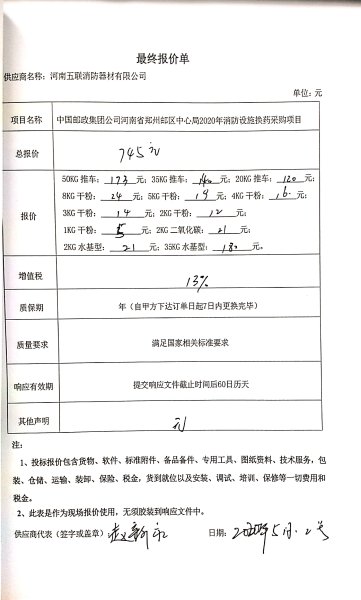 最终报价单
供应商名称：河南五联消防器材有限公司
单位：元
项目名称 中国邮政集团公司河南省郑州邮区中心局2020年消防设施换药采购项目
总报价 745元
报价 50KG推车：173元；35KG推车：140元；20KG推车：120元；
8KG干粉：24元；5KG干粉：19元；4KG干粉：16元；
3KG干粉：14元；2KG干粉：12元；
1KG干粉：5元；2KG二氧化碳：21元；
2KG水基型：21元；35KG水基型：180元。
增值税 13%
质保期 年（自甲方下达订单日起7日内更换完毕）
质量要求 满足国家相关标准要求
响应有效期 提交响应文件截止时间后60日历天
其他声明 无
注：
1、投标报价包含货物、软件、标准附件、备品备件、专用工具、图纸资料、技术服务，包
装、仓储、运输、装卸、保险、税金，货到就位以及安装、调试、培训、保修等一切费用和
税金。
2、此表是作为现场报价使用，无须胶装到响应文件中。
供应商代表（签字或盖章） 日期：2020年5月2号